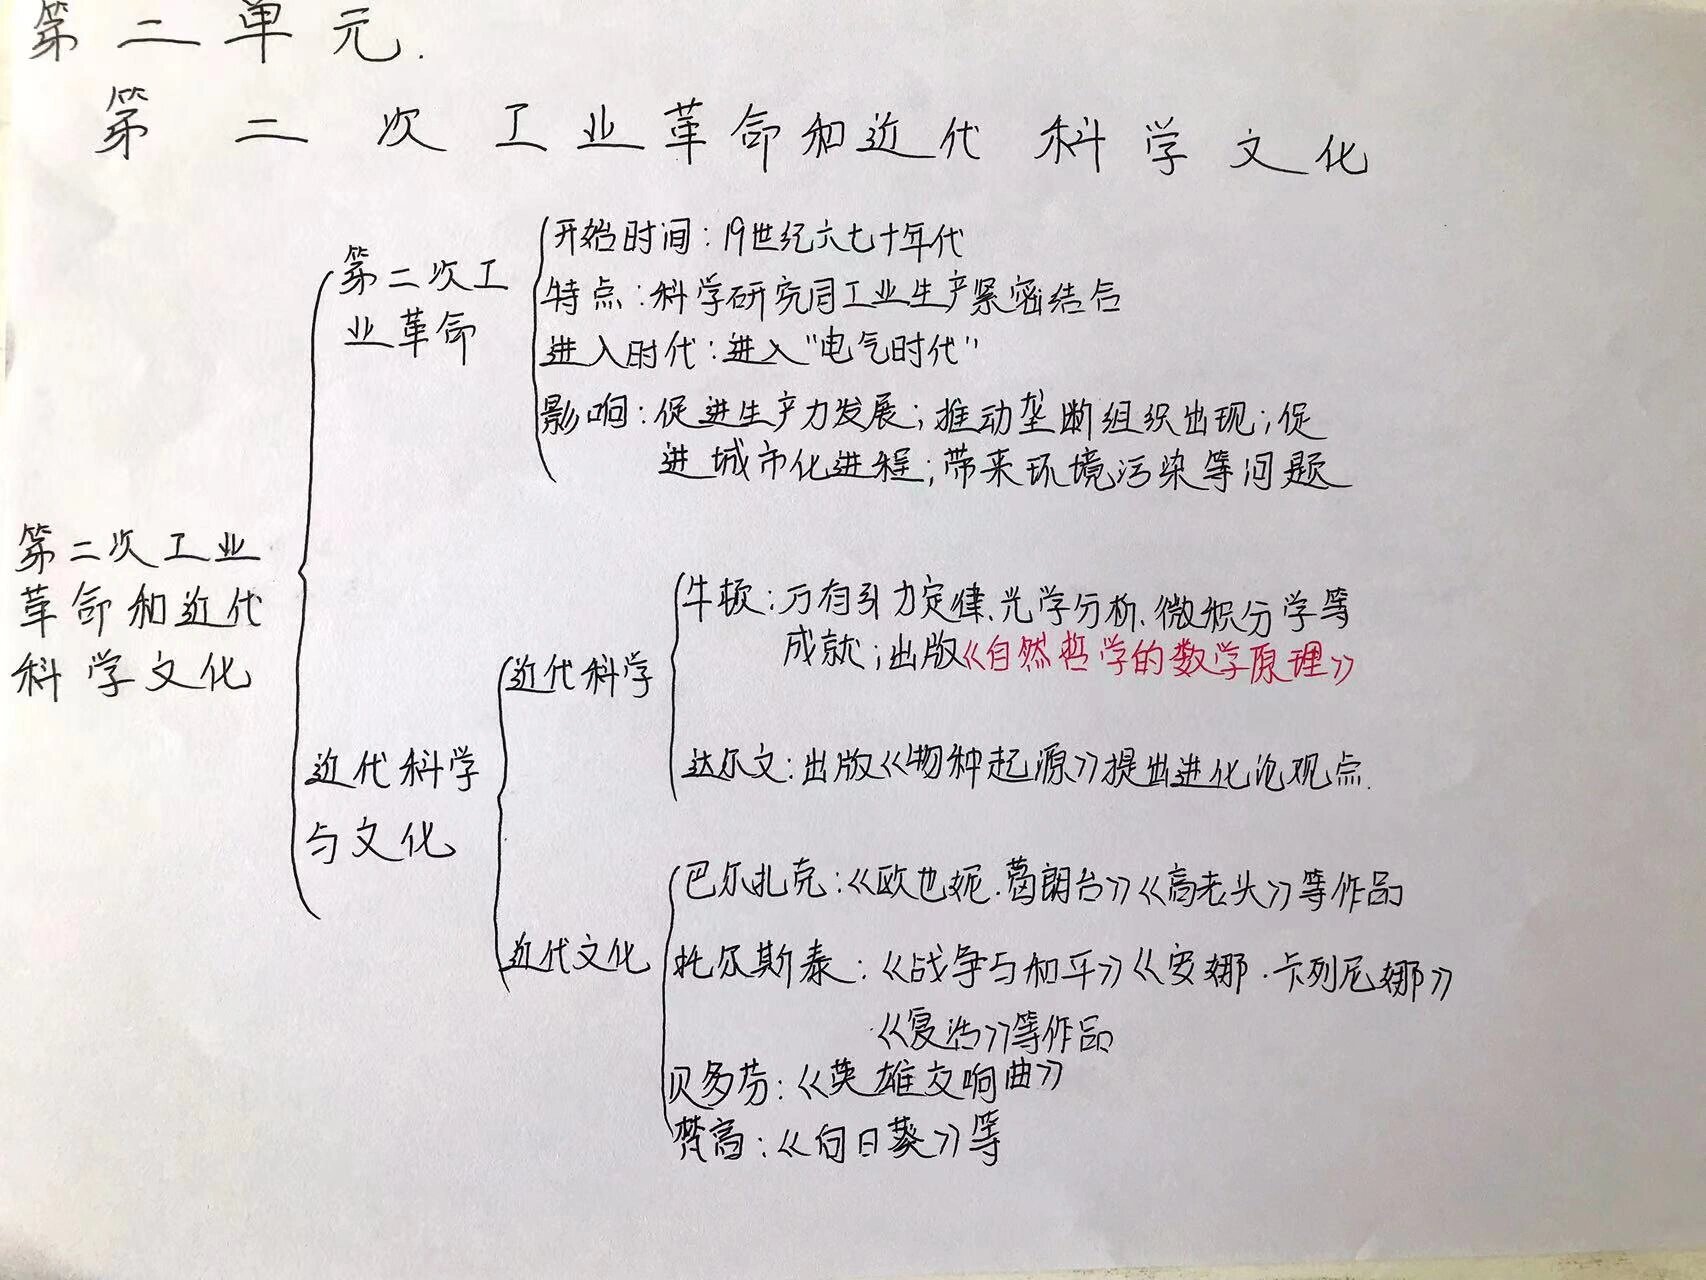 第二单元.
第二次工业革命和近代科学文化
第二次工业
革命和近代
科学文化
第二次工
业革命
开始时间：19世纪六七十年代
特点：科学研究同工业生产紧密结合
进入时代：进入"电气时代"
影响：促进生产力发展；推动垄断组织出现；促
进城市化进程；带来环境污染等问题
近代科学
与文化
近代科学
牛顿：万有引力定律、光学分析、微积分学等
成就；出版《自然哲学的数学原理》
达尔文：出版《物种起源》提出进化论观点.
近代文化
巴尔扎克：《欧也妮·葛朗台》《高老头》等作品
托尔斯泰：《战争与和平》《安娜·卡列尼娜》
《复活》等作品
贝多芬：《英雄交响曲》
梵高：《向日葵》等